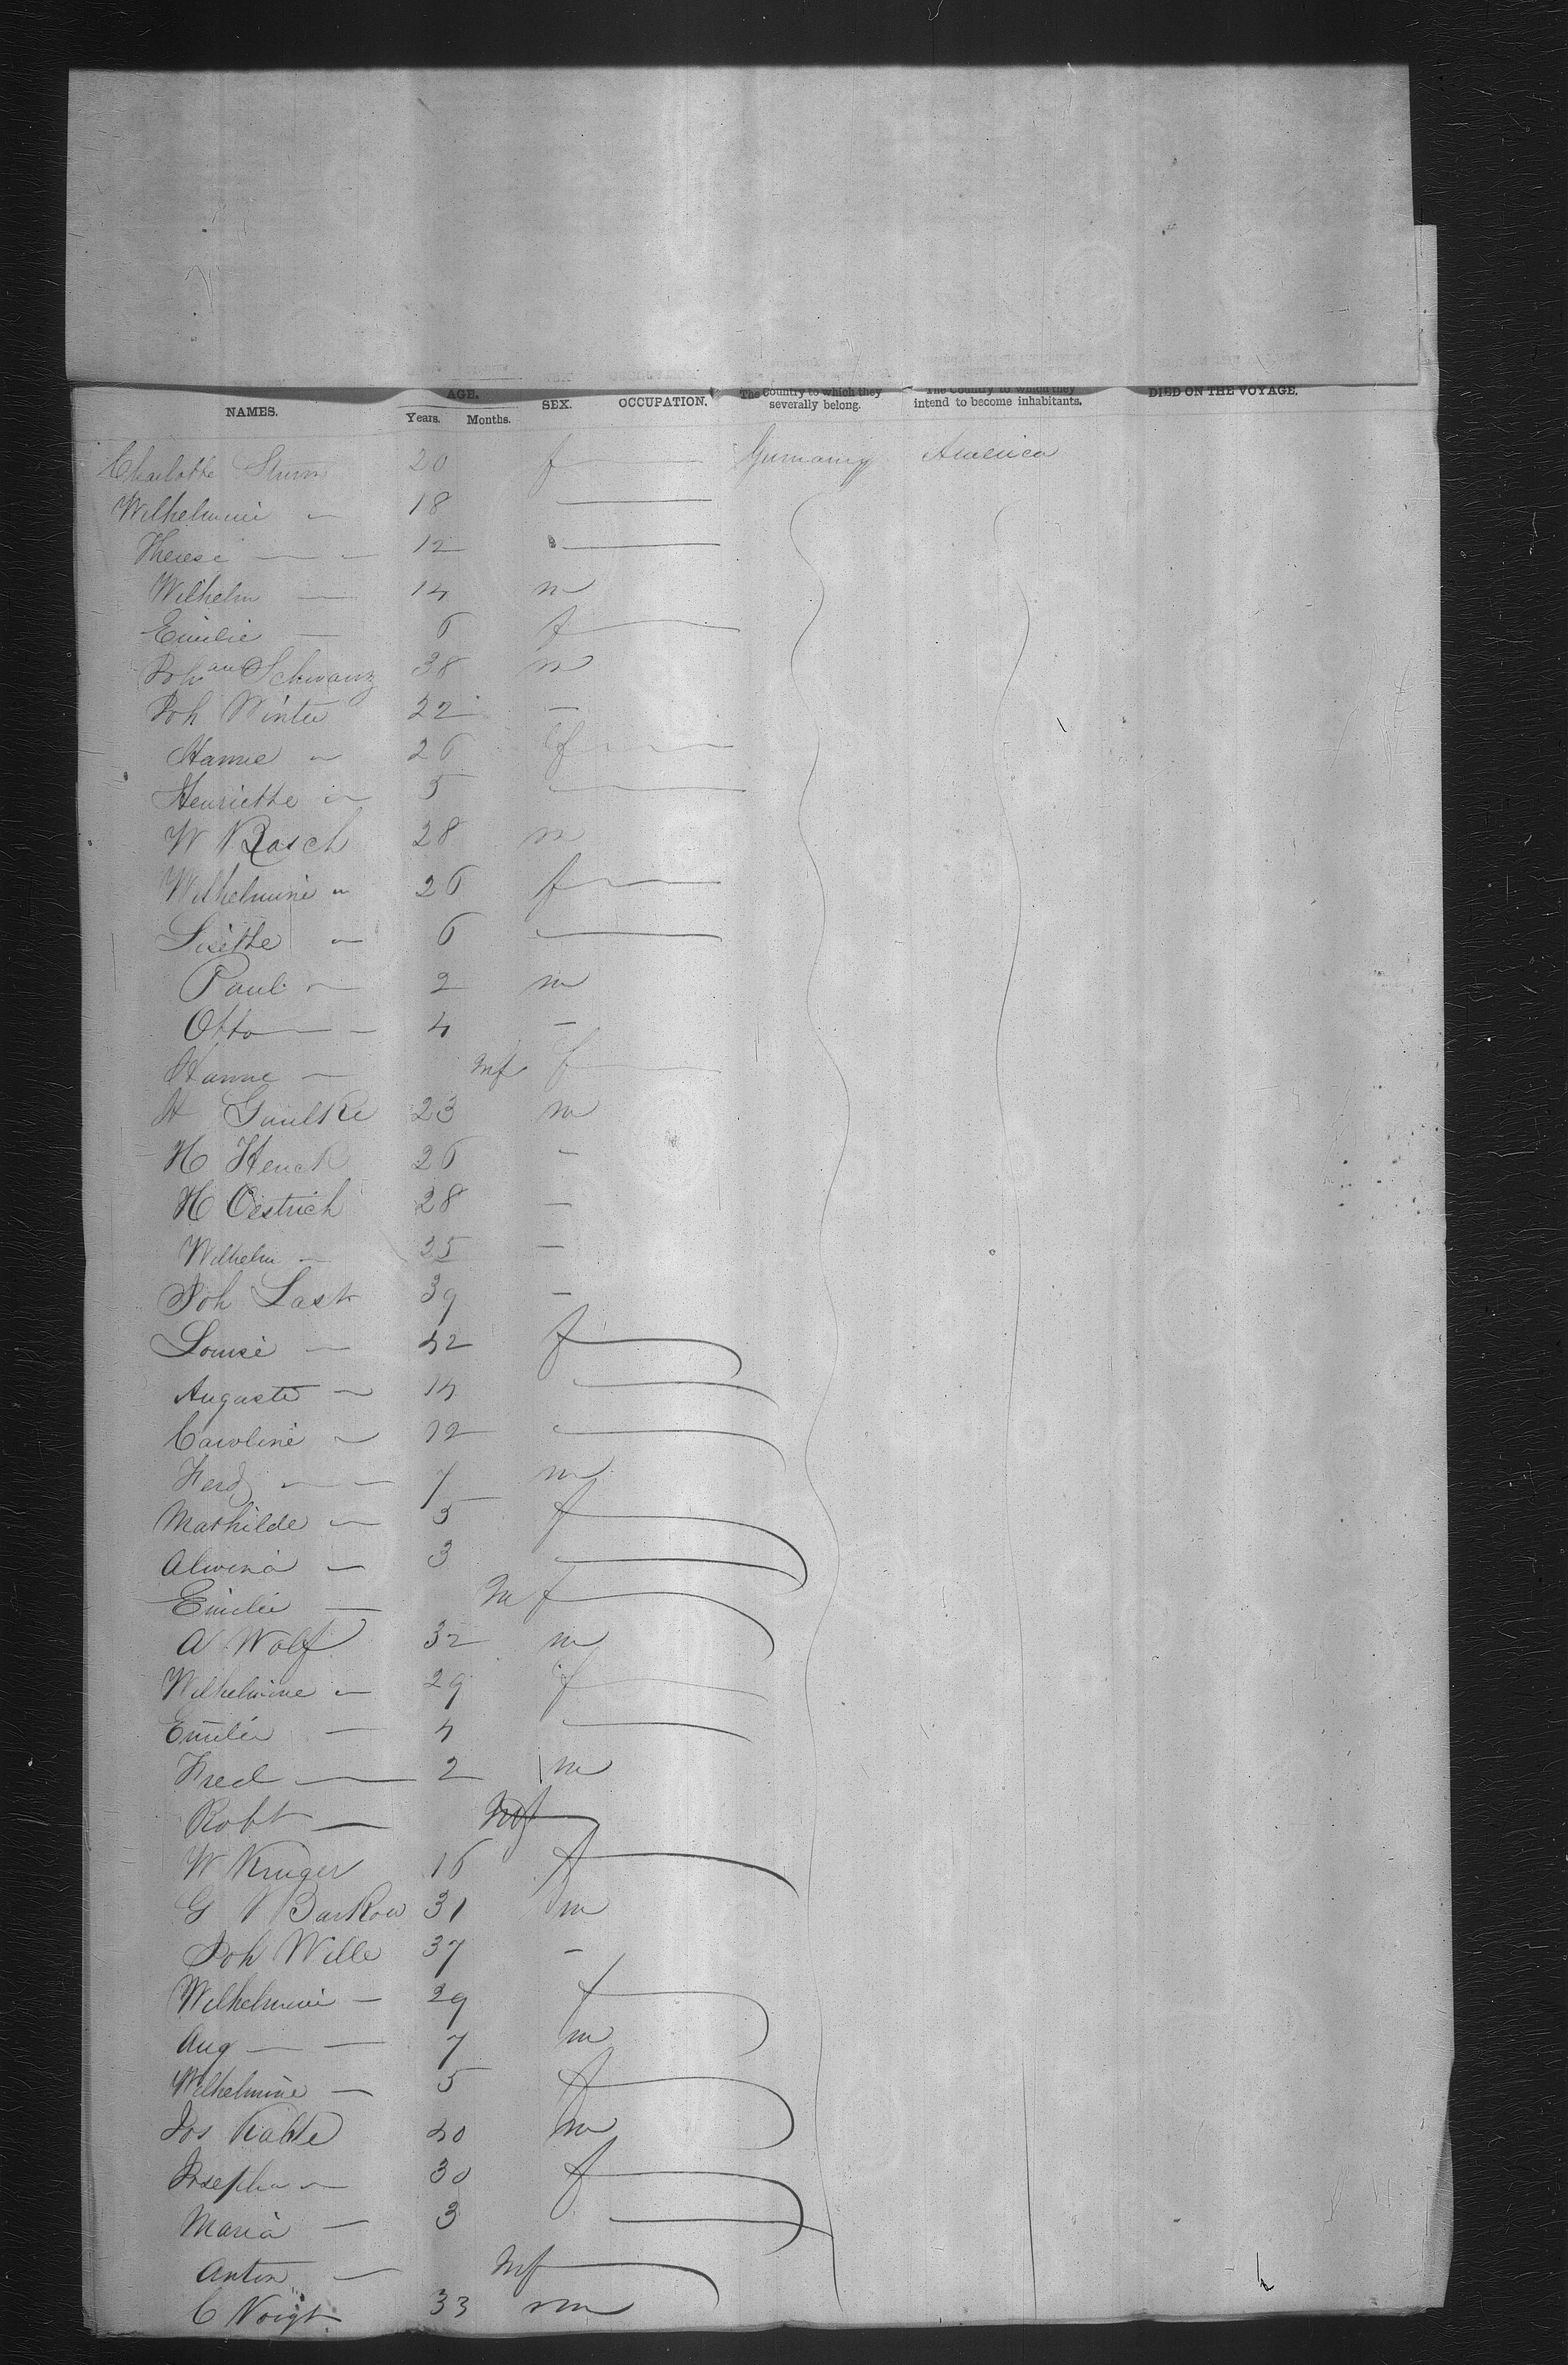 NAMES. AGE. Years. Months. SEX. OCCUPATION. The Country to which they severally belong. The Country to which they intend to become inhabitants. DIED ON THE VOYAGE.
Charlotte Sturm 20 f — Germany America
Wilhelmine " 18 —
Therese — " 12 —
Wilhelm — 14 m
Emilie — 6 f —
Johan Schwanz 38 m
Joh Winter 22 —
Hanne " 26 f —
Henriette " 5 —
W Rasch 28 m
Wilhelmine " 26 f —
Lisette " 6 —
Paul " 2 m
Otto — 4 —
Hanne — Inf f —
H Gaulke 23 m
H Henck 26 —
H Oestrich 28 —
Wilhelm — 35 —
Joh Last 39 —
Louise — 42 f —
Auguste — 14 —
Caroline — 12 —
Ferd — 7 m
Mathilde — 5 f —
Alwina — 3 —
Emilie — Inf —
A Wolf 32 m
Wilhelmine — 29 f —
Emilie — 4 —
Fred — 2 m
Robt — Inf —
W Kruger 16 f —
G Barkow 31 m
Joh Wille 37 —
Wilhelmine — 29 f —
Aug — 7 m
Wilhelmine — 5 f —
Jos 40 m
Josepha — 30 f —
Maria — 3 —
Anton — Inf —
C Voigt 33 m